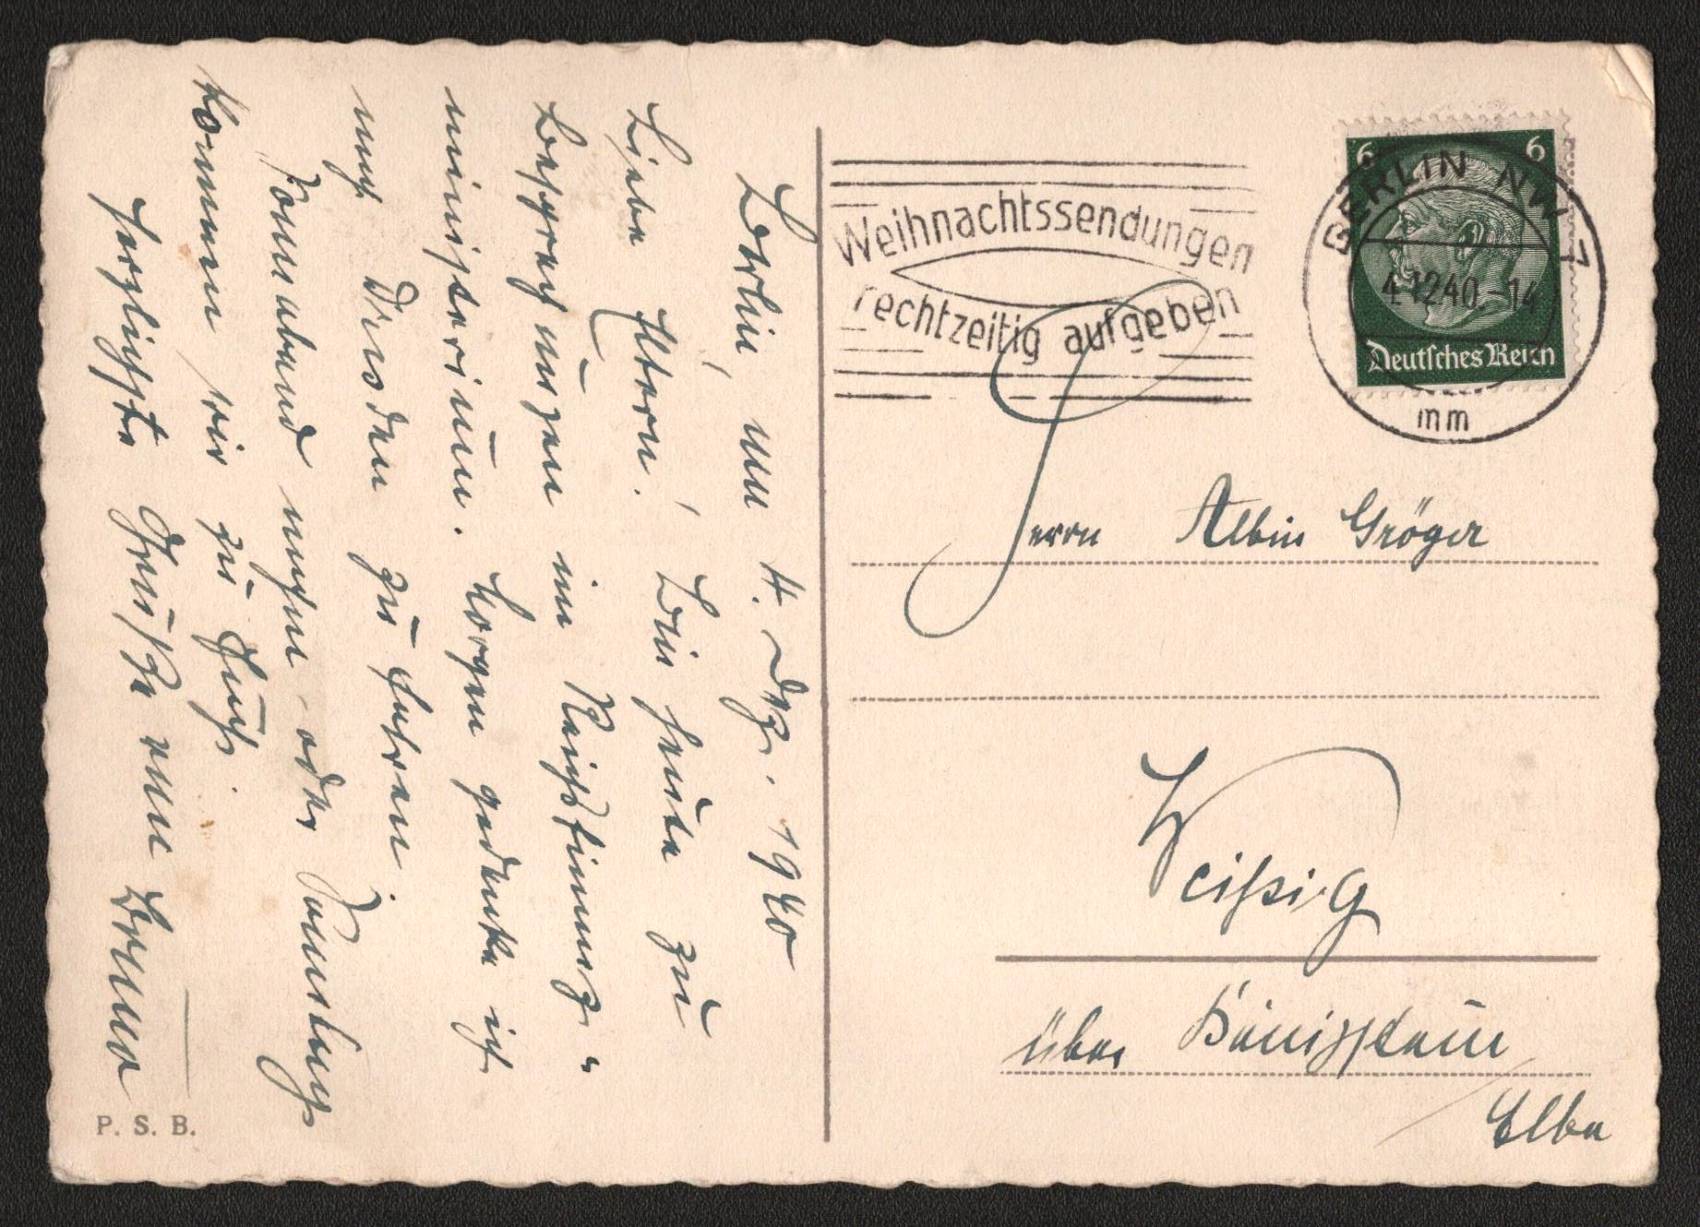 Berlin, am 4. Dez. 1940
Liebe Eltern! Bin heute zu
Besprechungen im Reichsfinanz-
ministerium. Morgen gedenke ich
nach Dresden zu fahren.
Sonnabend mchn. oder Sonntag
kommen wir zu Euch.
Herzlichste Grüße von Bruno
P. S. B.
Weihnachtssendungen
rechtzeitig aufgeben
BERLIN NW 7
4.12.40.-14
mm
6 6
Deutsches Reich
Herrn Albin Gröger
Weißig
über Königstein
Elbe